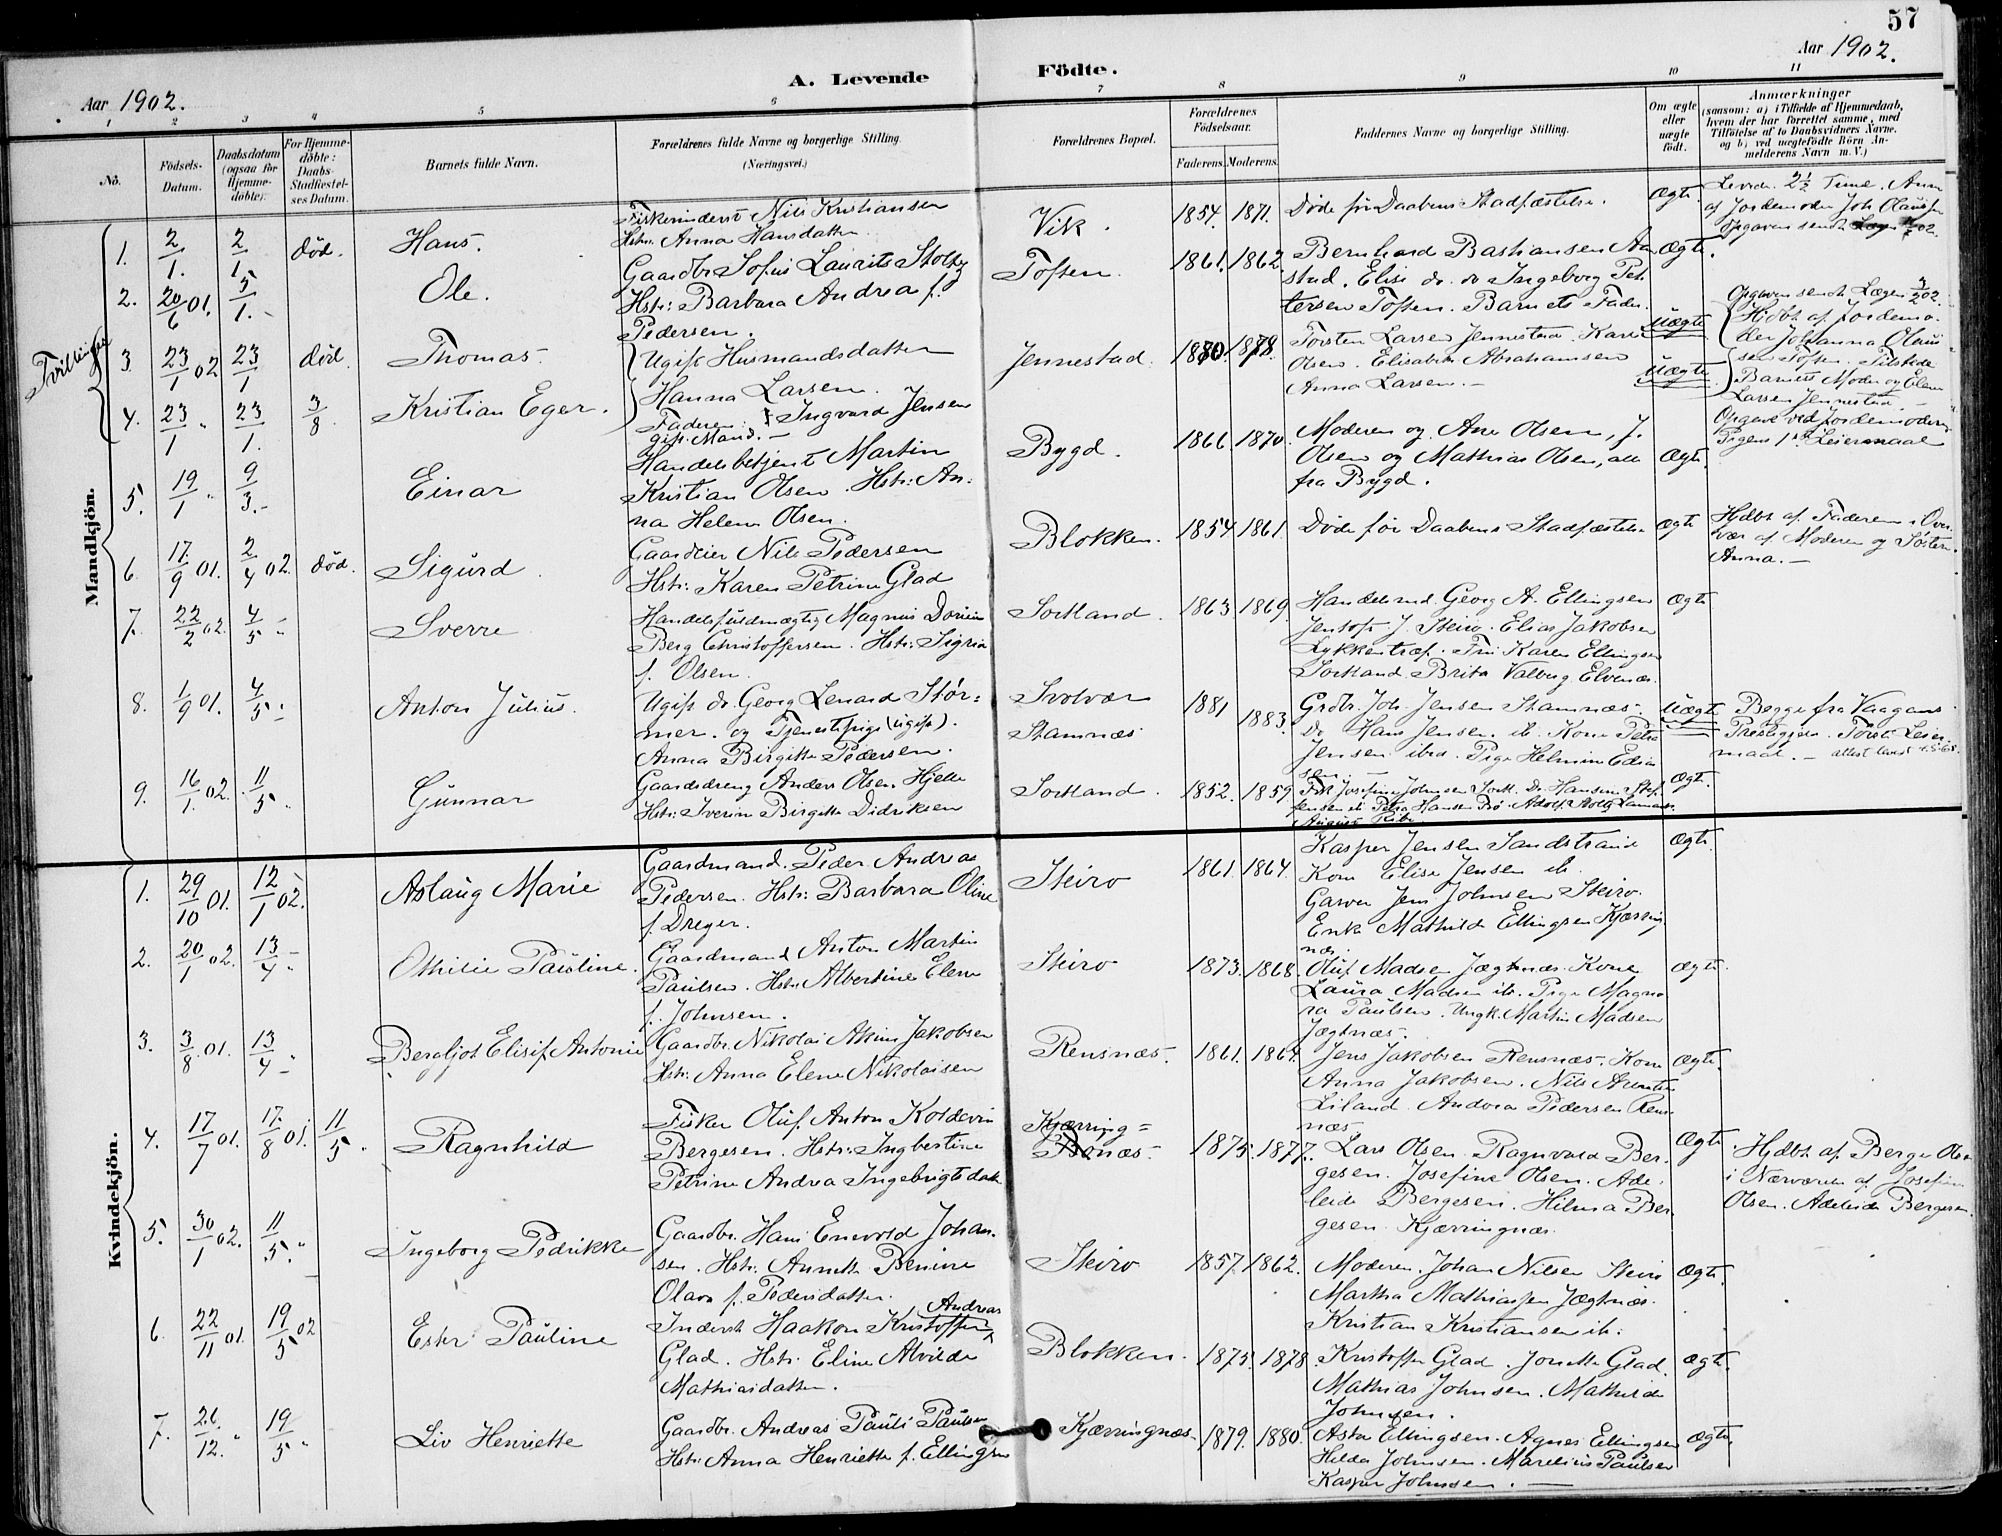 57
Aar 1902.
A. Levende Fødte.
Aar 1902.
1 2 3 4 5 6 7 8 9 10 11
No.
Fødsels-Datum.
Daabsdatum (ogsaa for Hjemmedøbte).
For Hjemmedøbte: Daabs-Stadfæstelses Datum.
Barnets fulde Navn.
Forældrenes fulde Navne og borgerlige Stilling.
(Næringsvei.)
Forældrenes Bopæl.
Forældrenes Fødselsaar.
Faderens. Moderens.
Faddernes Navne og borgerlige Stilling.
Om ægte eller uægte født.
Anmærkninger
(saasom: a) i Tilfælde af Hjemmedaab,
hvem der har forrettet samme, med
Tilføielse af to Daabsvidners Navne.
og b) ved uægtefødte Børn Anmelderens Navn m. V.)
Mandkjön.
1. 2/1. 2/1. død. Hans.
Nils Kristiansen
Hstr. Anna Hansdatter
Vik. 1854. 1871. Døde før Daabens Stadfæstelse. Ægte
Levede 2½ Time.
af Jordemoder Joh.
2. 20/6 01. 5/1. Ole.
Gaardbr. Sofus Laurits Stolt
Hstr: Barbara Andrea f.
Pedersen.
Toften. 1861. 1862. Bernhard Bastiansen
Elise do. do Ingeborg
Toften. Barnets Fader.
Ægte.
Tvillinger
3. 23/1 02 23/1 død Thomas.
4. 23/1 " 23/1. 3/8 Kristian Eger.
Ugift Husmandsdatter
Hanna Larsen.
Faderen: Ingvard Jensen
gift Mand. —
Jennestad. 1878.
Torsten Larsen Jennestad. Karen
Olsen. Elisabeth Abrahamsen
Anna Larsen. —
Uægte
Uægte
Opgaven sendt Lægen 3/2 02.
Hjdbt. af Jordemoder Johanna
Toften. Tilstede
Barnets Moder og
Larsen Jennestad —
Opgave ved Jordemoderen
Pigens 1ste Leiermaal
5. 19/1 " 9/3.- Einar
Handelsbetjent Martin
Kristian Olsen. Hstr: Anna Helene Olsen.
Bygd. 1866. 1870.
Moderen og Ane Olsen, J.
Olsen og Mathias Olsen, alle
fra Bygd.
Ægte.
6. 17/9 01. 2/4 02. død. Sigurd.
Gaardeier Nils Pedersen
Hstr: Karen Petrine Glad
Blokken. 1854. 1861. Døde før Daabens Stadfæstelse ægte
Hjdbt. af Faderen i Overvær af Moderen og Søsteren
Anna. —
7. 22/2 02. 4/5 Sverre
Handelsfuldmægtig Magnus
Berg Christoffersen. Hstr: Sigrid
f. Olsen.
Sortland. 1863. 1869.
Handelsmd. Georg A. Ellingsen
Jentoft J. Steiro. Elias Jakobsen
Karen Ellingsen
Sortland. Brita
Ægte
8. 1/9 01. 4/5 Anton Julius.
Ugift do Georg Lenard Størmer. og Tjenestepige (ugift).
Anna Birgitte Pedersen.
Svolvær
Stamnæs
1881 1883.
Grdbr. Joh. Jensen Stamnæs.
Do Hans Jensen ib. Kone Petra
Jensen ibid. Pige Helmine
Uægte
Begge fra Vaagans
Prestegjæld. Første Leiermaal. —
9. 16/1. 02. 11/5 Gunnar
Gaardsdreng Anders Olsen Hjelle
Hstr: Iverine Birgitte Didriksen
Sortland. 1852. 1859.
Frk Josefine Johnsen Sortl.
Ægte
Kvindekjön.
1. 29/10 01. 12/1 02. Aslaug Marie
Gaardmand. Peder Andreas
Pedersen. Hstr: Barbara Oline
f. Dreyer.
Steiro 1861. 1864.
Kasper Jensen Sandstrand
Kone Elise Jensen ib.
Garver Jens Johnsen Steiro.
Enke Mathilde Ellingsen Kjærringnæs.
Ægte.
2. 20/1 02. 13/4 Othilie Pauline.
Gaardmand Anton Martin
Paulsen. Hstr. Albertine Elene
f. Johnsen.
Steiro 1873. 1868.
Oluf Madsen Jægtnæs. Kone
Laura Madsen ib. Pige Magna
Paulsen. Ungk. Martin Madsen
Jægtnæs.
ægte.
3. 3/8 01. 13/4 Bergljot Elisif Antonie
Gaardbr. Nikolai Jakobsen
Hstr: Anna Elene Nikolaisen
Rensnæs. 1861. 1864.
Jens Jakobsen Rensnæs. Kone
Anna Jakobsen. Nils
Liland. Andrea Pedersen Rensnæs.
Ægte.
4. 17/7 01. 17/8 01. 11/5. Ragnhild
Fisker Oluf Anton
Bergesen. Hstr: Ingbertine
Petrine Andrea Ingebrigtsdatt
Kjærringnæs. 1875. 1877.
Lars Olsen. Ragnvald Bergesen. Josefine Olsen. Adeleide Bergesen. Hilma Bergesen. Kjærringnæs.
Ægte
Hjdbt. af Berge Olsen
i Nærværen af Josefine
Olsen. Adeleide Bergesen.
5. 30/1 02. 11/5. Ingeborg Pedrikke
Gaardbr. Hans Enevold Johansen. Hstr: Annette Benine
Olava f. Pedersdatter.
Steiro 1857. 1862.
Moderen. Johan Nilsen Steiro
Martha Mathiassen Jægtnæs.
Kristian Kristiansen ib.
Ægte.
6. 22/11 01. 19/5 02 Ester Pauline
Inderst Haakon Kristoffer Andreas
Glad. Hstr: Eline Alvilde
Mathiasdatter.
Blokken. 1875. 1878.
Kristoffer Glad. Jonette Glad.
Mathias Johnsen. Mathilde
Johnsen.
Ægte.
7. 26/12. " 19/5 " Liv Henriette
Gaardbr. Andreas Pauli Paulsen
Hstr: Anna Henriette f. Ellingsen
Kjærringnæs. 1879. 1880.
Asta Ellingsen. Agnes Ellingsen
Hilda Johnsen. Marelius Paulsen
Kasper Johnsen. —
Ægte.